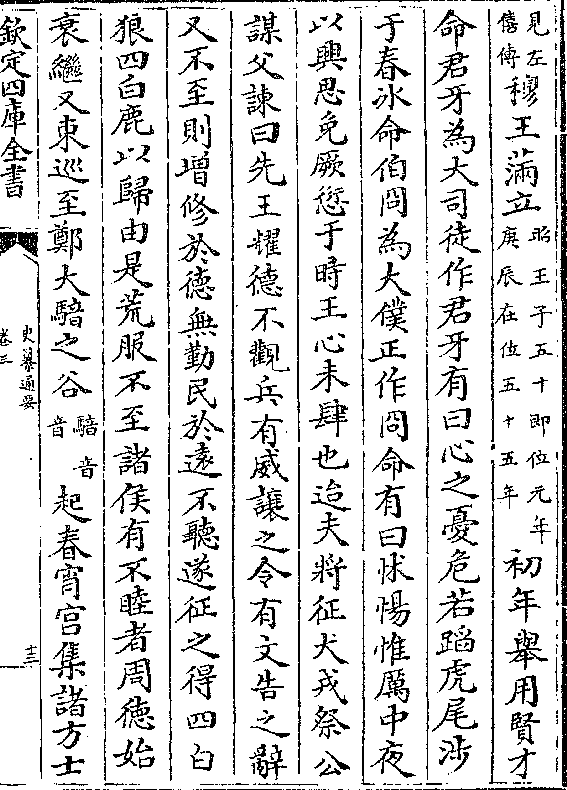 見左
僖傳
穆王蒲立
昭王子五十即位元年
庚辰在位五十五年
初年舉用賢才
命君牙為大司徒作君牙有曰心之憂危若蹈虎尾涉
于春冰命伯冏為大僕正作冏命有曰怵惕惟厲中夜
以興思免厥愆于時王心未肆也迨夫將征犬戎祭公
謀父諫曰先王耀德不觀兵有威讓之令有文告之辭
又不至則增修於德無勤民於遠不聽遂征之得四白
狼四白鹿以歸由是荒服不至諸侯有不睦者周德始
衰繼又東巡至鄭大䮰之谷
䮰音
音
起春宵宮集諸方士
欽定四庫全書
史纂通要
卷三
十三